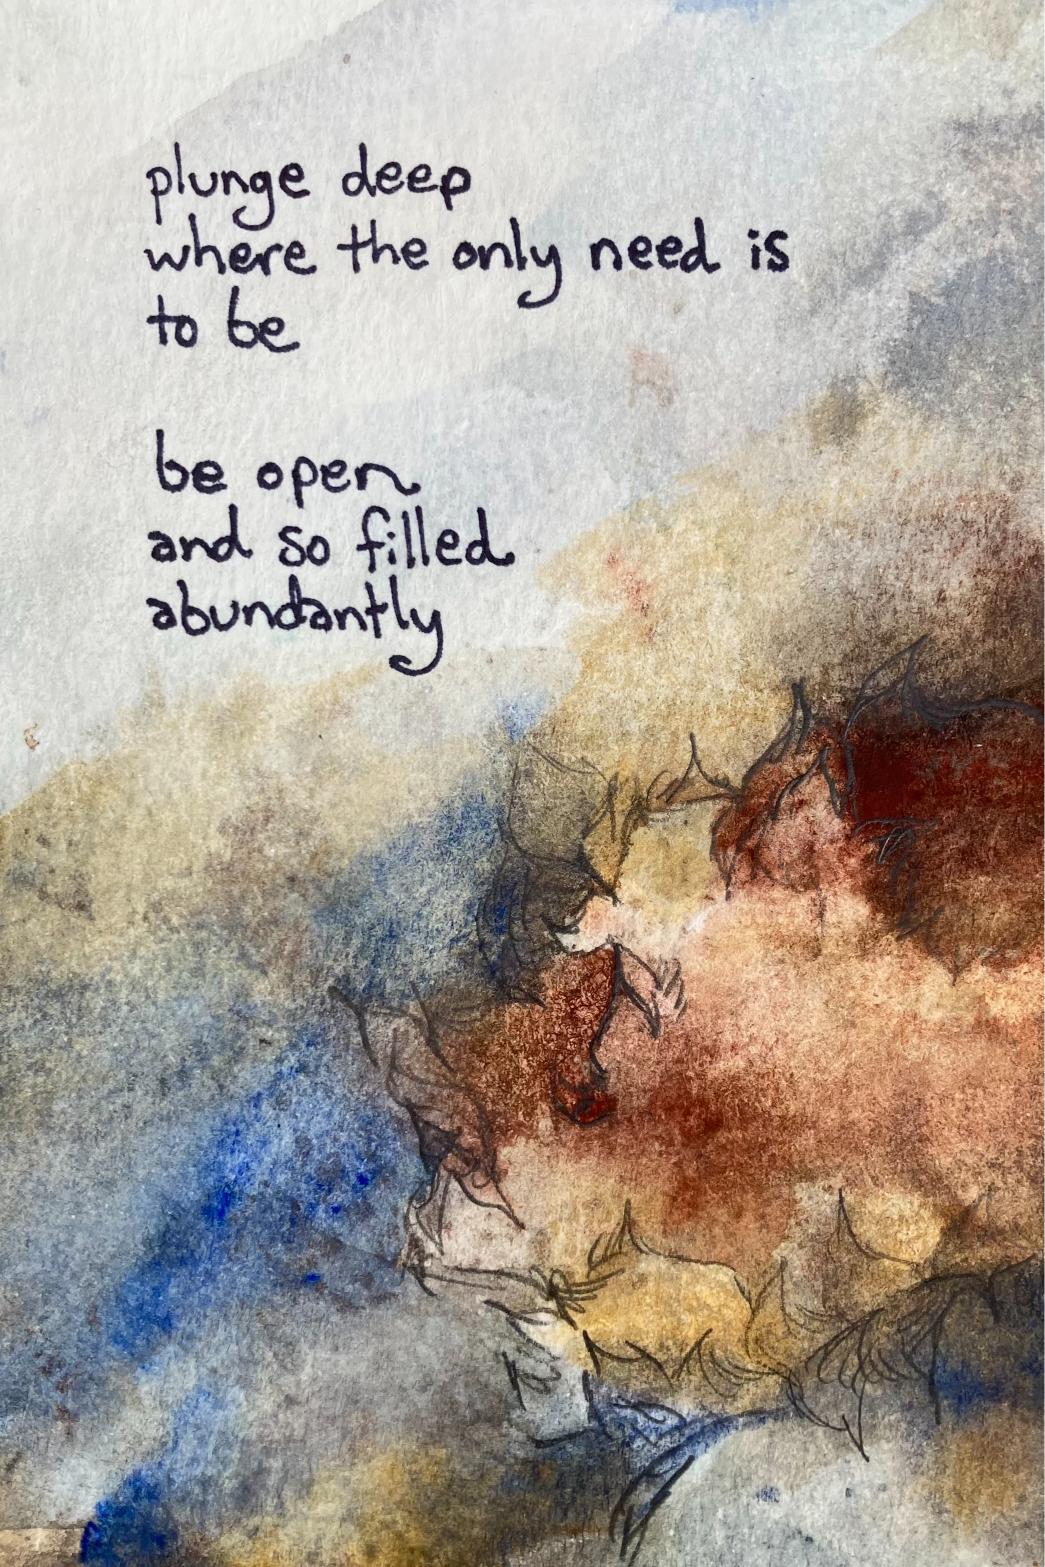 plunge deep
where the only need is
to be
be open
and so filled
abundantly